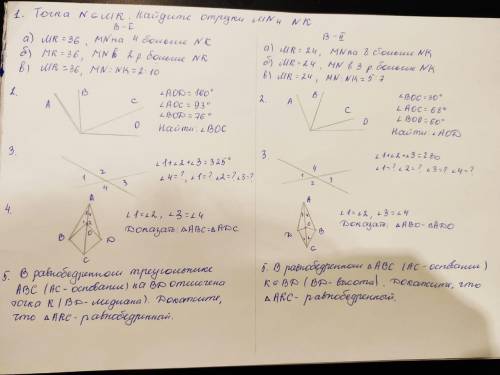 1. Точка N ∈ MR. Найдите отрезки MN и NK
В-I
а) MR=36, MN на 4 больше NK
б) MR=36, MN в 2 р больше NK
в) MR=36, MN:NK=2:10
В-II
а) MR=24, MN на 8 больше NK
б) MR=24, MN в 3 р больше NK
в) MR=24, MN:NK=5:7
2.
A
B
C
D
∠AOD=160°
∠AOC=93°
∠BOD=76°
Найти: ∠BOC
2.
A
B
C
D
∠BOC=30°
∠AOC=68°
∠BOD=60°
Найти: ∠AOD
3.
1 2 3 4
∠1+∠2+∠3=325°
∠4=?, ∠1=? ∠2=? ∠3=?
3.
4
1 3
2
∠1+∠2+∠3=230
∠1=? ∠2=? ∠3=? ∠4=?
4.
A
1 2
3 4
O
B D
C
∠1=∠2, ∠3=∠4
Доказать: △ABC=△ADC
4.
A
B
D
C
∠1=∠2, ∠3=∠4
Доказать: △ABO=△ADO
5. В равнобедренном треугольнике
ABC (AC-основание) на BD отмечена
точка K (BD-медиана). Докажите,
что △ARC-равнобедренной.
5. В равнобедренном △ABC (AC-основание)
K∈BD (BD-высота). Докажите, что
△ARC-равнобедренной.